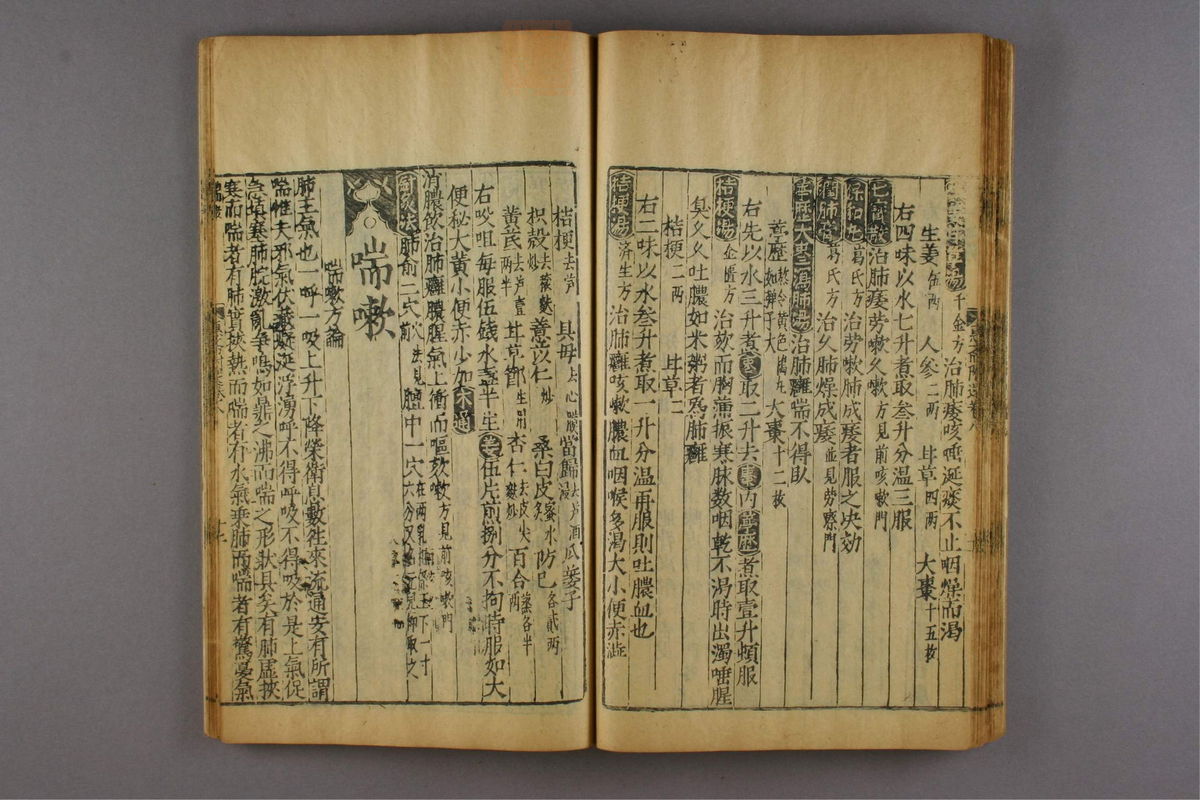 千金方治肺痿咳唾涎痰不止咽燥而渴
生姜伍兩　人參二兩　甘草四兩　大棗十五枚
右四味以水七升煮取叁升分温三服
治肺痿劳嗽久嗽方見前咳嗽門
葛氏方治劳嗽肺成痿者服之决効
葛氏方治久肺燥成痿並見劳瘵門
葶歷大棗瀉肺湯治肺癰喘不得臥
葶歷熬令黄色搗丸如弹子大　大棗十二枚
右先以水三升煮棗取二升去棗内葶歷煮取壹升頓服
桔梗湯金匱方治咳而胸滿振寒脉数咽乾不渴時出濁唾腥
臭久久吐膿如米粥者為肺癰
桔梗二兩　甘草二
右二味以水叁升煮取一升分温再服則吐膿血也
桔梗湯済生方治肺癰咳嗽膿血咽喉多渴大小便赤澁
桔梗去芦　貝母去心膜　當歸去芦酒浸　瓜蔞子
枳殻去穰麩炒　薏苡仁炒　桑白皮蜜水炙　防已各貳兩
黄芪去芦壹兩半　甘草節生用　杏仁去皮尖麩炒　百合蒸各半兩
右㕮咀每服伍錢水壹盞半生姜伍片煎捌分不拘時服如大
便秘大黄小便赤少加木通
消膿飲治肺癰膿腥氣上衝而嘔咳嗽方見前咳嗽門
灸法肺俞二穴穴法見前　膻中一穴在两乳間
喘嗽
喘嗽方論
肺主氣也一呼一吸上升下降榮衛息數徃來流通安有所謂
喘惟夫邪氣伏藏痰涎浮湧呼不得呼吸不得吸於是上氣促
急填塞肺脘激亂爭鳴如鼎之沸而喘之形狀具矣有肺虛挾
寒而喘者有肺實挾熱而喘者有水氣乗肺而喘者有驚憂氣